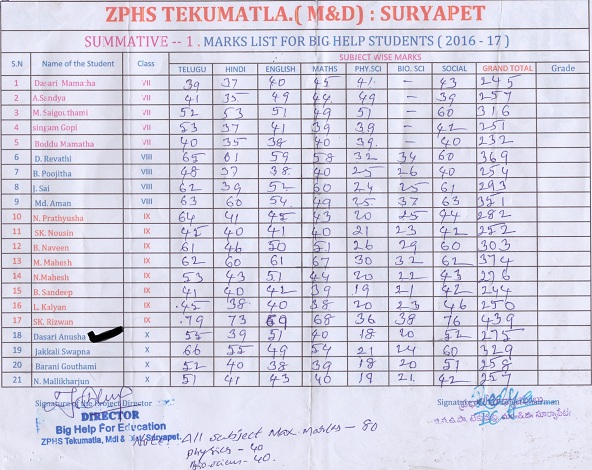 ZPHS TEKUMATLA.( M&D) : SURYAPET
SUMMATIVE -- 1 . MARKS LIST FOR BIG HELP STUDENTS ( 2016 - 17 )
S.N Name of the Student Class SUBJECT WISE MARKS
TELUGU HINDI ENGLISH MATHS PHY.SCI BIO. SCI SOCIAL GRAND TOTAL Grade
1 Dasari Mamatha VII 39 37 40 45 41 - 43 245
2 A.Sandya VII 41 35 49 44 49 - 39 257
3 M. Saigouthami VII 52 53 51 49 51 - 60 316
4 singam Gopi VII 53 37 41 39 39 - 42 251
5 Boddu Mamatha VII 40 35 38 40 39 - 40 232
6 D. Revathi VIII 65 61 59 58 32 34 60 369
7 B. Poojitha VIII 48 37 38 40 25 26 40 254
8 J. Sai VIII 62 39 52 60 24 25 61 293
9 Md. Aman VIII 63 60 54 49 25 37 63 351
10 N. Prathyusha IX 64 41 45 43 20 25 44 282
11 SK. Nousin IX 45 40 41 40 21 23 42 252
12 B. Naveen IX 61 46 50 51 26 29 60 303
13 M. Mahesh IX 62 60 61 67 30 32 62 374
14 N.Mahesh IX 53 43 51 44 20 22 43 276
15 B. Sandeep IX 41 40 42 39 19 21 42 244
16 L. Kalyan IX 45 38 40 38 20 23 46 250
17 SK. Rizwan IX 79 73 69 68 36 38 76 439
18 Dasari Anusha X 55 39 51 40 18 20 52 275
19 Jakkali Swapna X 66 55 49 54 21 24 60 329
20 Barani Gouthami X 52 40 38 39 18 20 51 258
21 N. Mallikharjun X 51 41 43 40 19 21 42 257
Signature of the Project Director
DIRECTOR
Big Help For Education
ZPHS Tekumatla, Mdl & Suryapet.
Note: All Subject Max. Marks - 80
Physics - 40